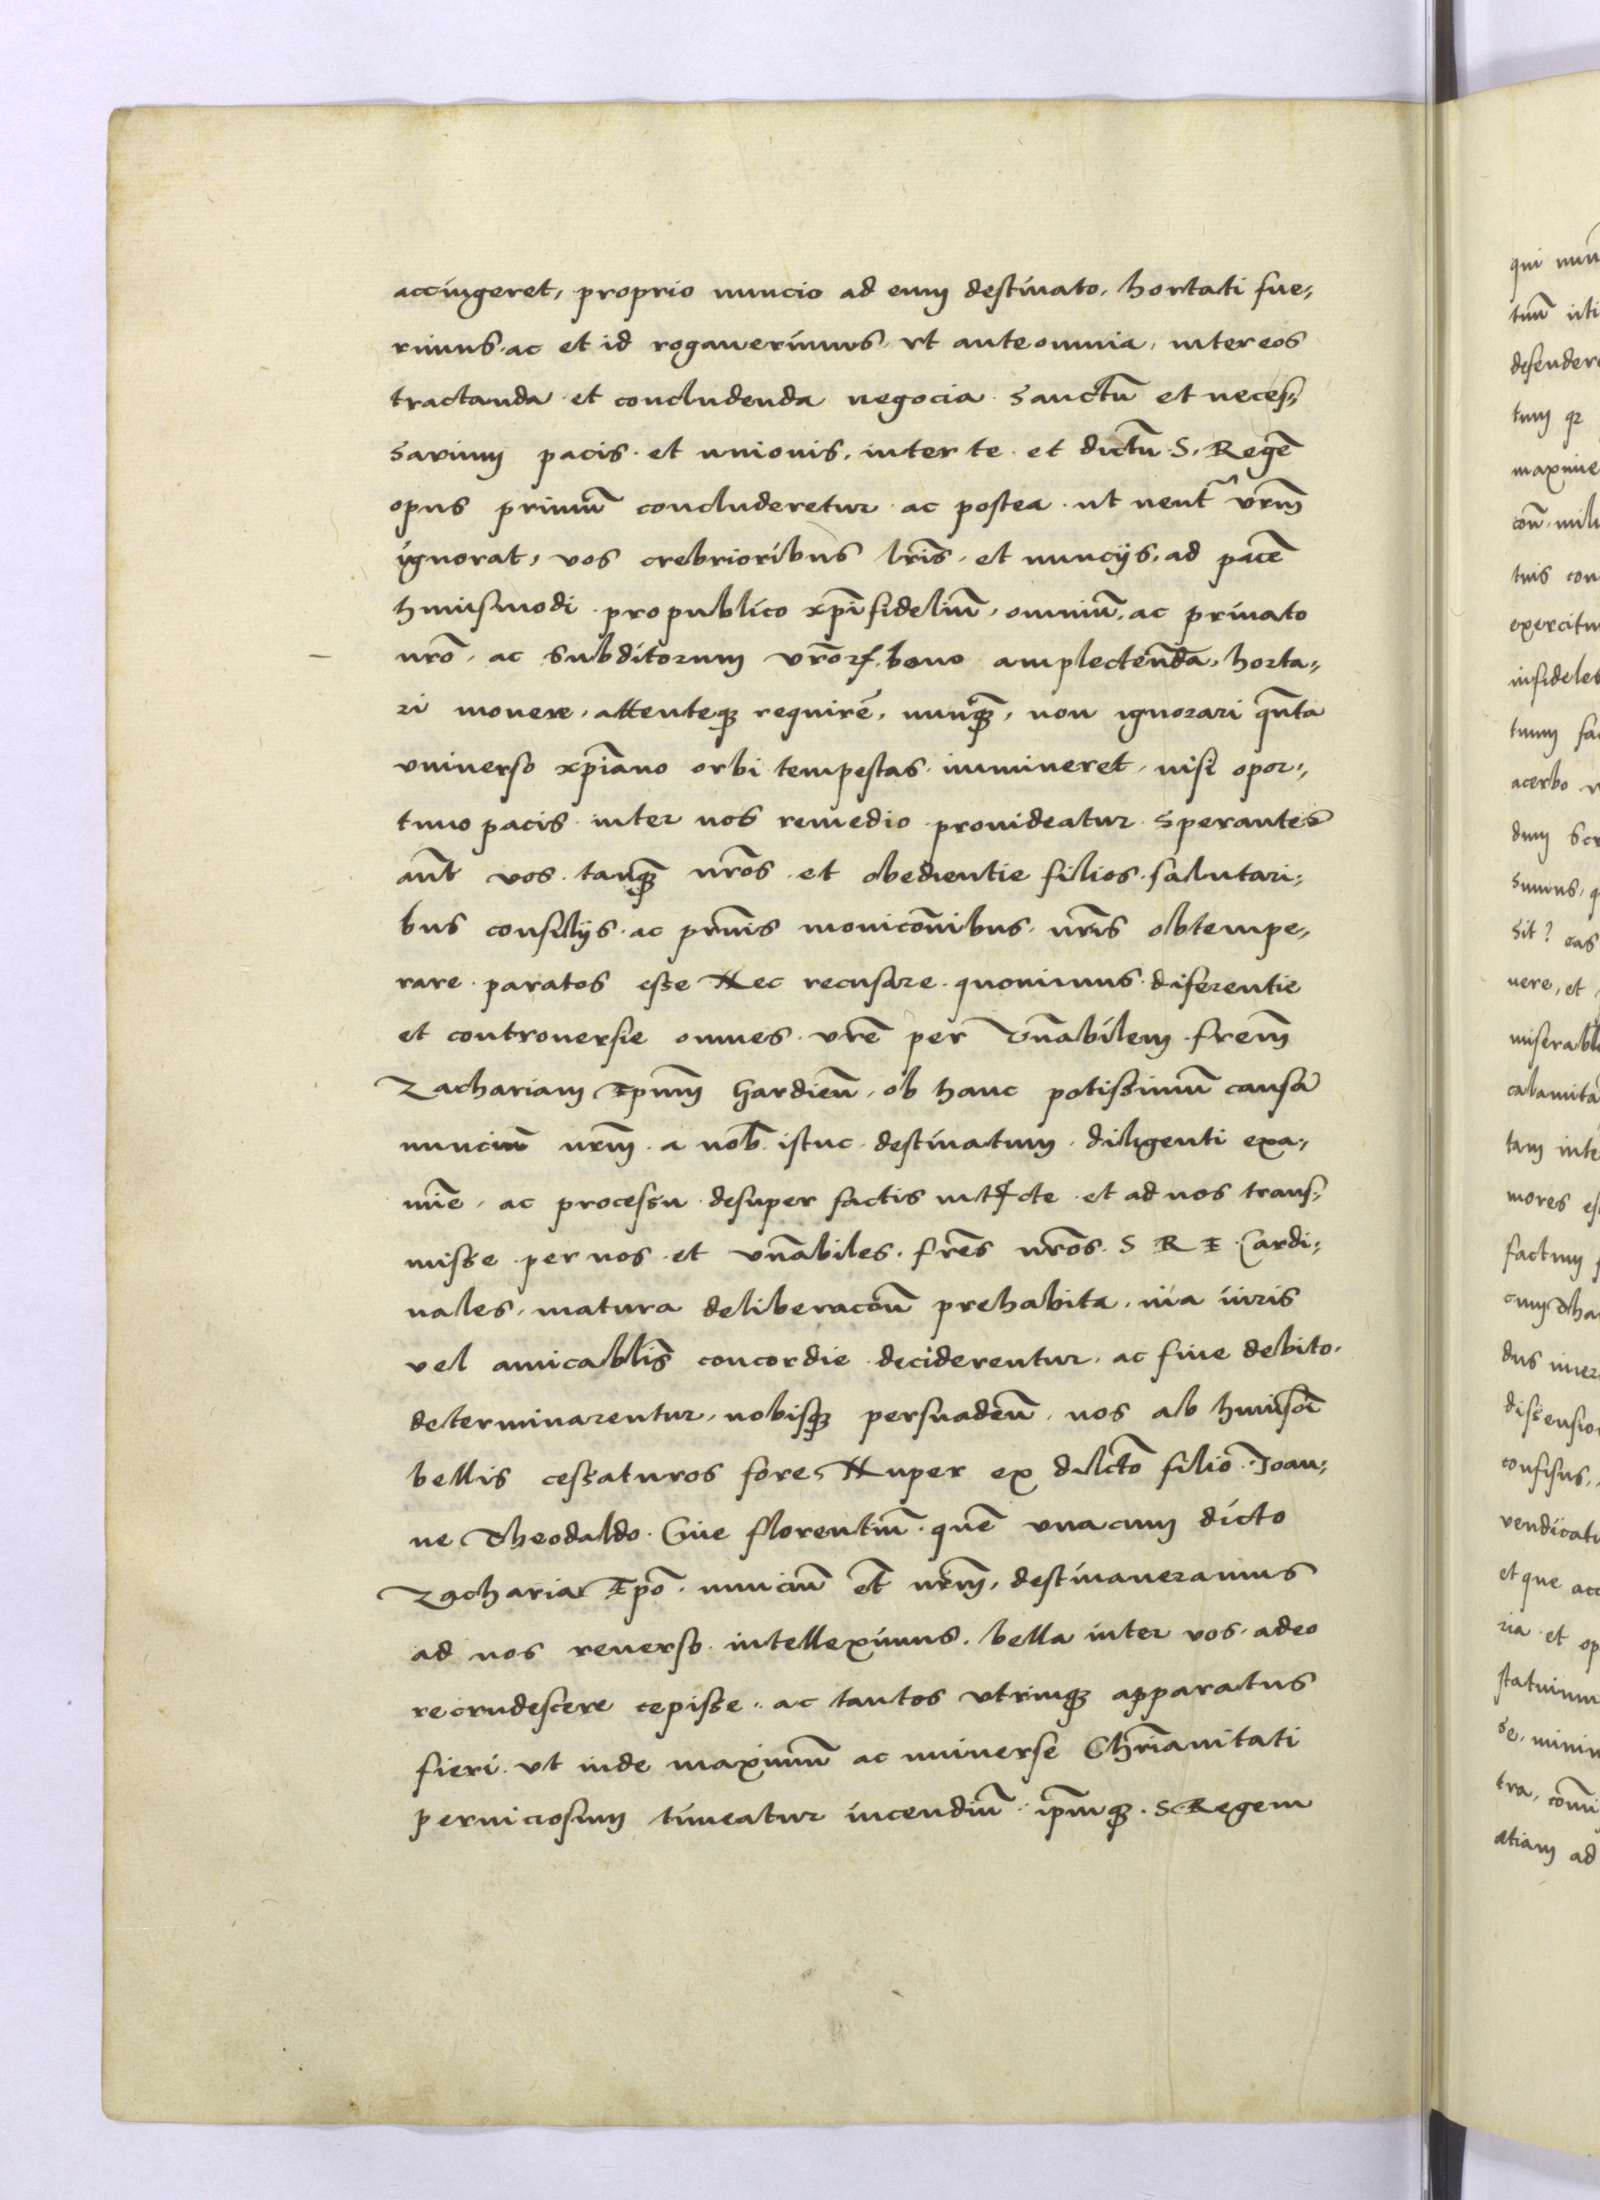 accingeret, proprio nuncio ad eum destinato, hortati fue,,
rimus, ac et id rogauerimus, vt ante omnia, inter eos
tractanda et concludenda negocia sanctū et neces,,
sarium pacis et unionis, inter te et dictū S. Regē
opus primū concluderetur ac postea ut neut̃ vr̄m
ignorat, vos crebrioribus lr̄is, et nuncijs, ad pacē
huiusmodi pro publico xp̄ifideliū, omniū, ac priuato
nr̄o, ac subditorum vr̄orꝝ bono amplectēndā, horta,,
ri monere, attenteqꝫ requirē, nunqꝫ̄, non ignorari qn̄ta
vniuerso xp̄iano orbi tempestas immineret, nisi opor,,
tuno pacis inter nos remedio prouideatur sperantes
aūt vos tanqꝫ̄ nr̄os et obedientie filios salutari,,
bus consilijs ac pn̄tis monicōnibus nr̄is obtempe,,
rare paratos esse Nec recusare quominus diferentie
et controuersie omnes vr̄e per Vn̄abilem fr̄em
Zachariam Ep̄um Gardień, ob hanc potissimū causā
nunciū nr̄m a nob̄ istuc destinatum diligenti exa,,
mīe, ac processu desuper factis et ad nos trans,,
misse per nos et vn̄abiles fr̄es nr̄os S R E Cardi,,
nales, matura deliberacōn̄ prehabita, uia iuris
vel amicabl̄is concordie deciderentur, ac fine debito
determinarentur, nobisqꝫ persuadeń, nos ab huiusōi
bellis cessaturos fore, Nuper ex dilcto filio Ioan,,
ne Theodaldo Ciue florentiń quē vna cum dicto
Zacharia Ep̄o nunciū et̄ nr̄m, destinaueramus
ad nos reuerso intelleximus, bella inter vos adeo
recrudescere cepisse, ac tantos vtrinqꝫ apparatus
fieri vt inde maximū ac uniuerse Chr̄ianitati
perniciosum timeatur incendiū ip̄mqꝫ S Regem
tuū uti
defender
tum qꝫ
maxime
tuis con
exercitu
infideles
tuum fa
acerbo
sit? eas
uere, et
miserabl
calamita
tam inte
mores es
factum
dissensio
confisus,
vendicat
et que acc
ria et op
statuimu
etiam ad